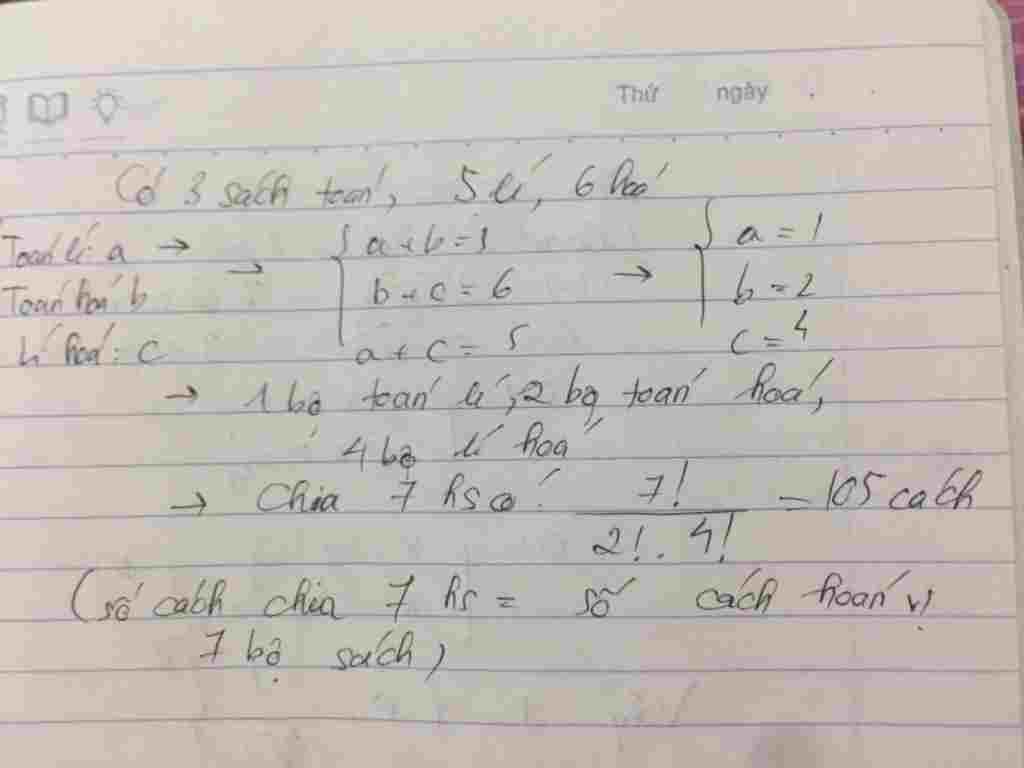 Thứ ngày
Có 3 sách toán, 5 lí, 6 hoá
Toán lí: a → → { a + b = 3 → { a = 1
Toán hoá b b + c = 6 b = 2
Lí hoá: c a + c = 5 c = 4
→ 1 bộ toán lí, 2 bộ toán hoá,
4 bộ lí hoá
→ Chia 7 hs có: 7! / 2! . 4! = 105 cách
(số cách chia 7 hs = số cách hoán vị
7 bộ sách)